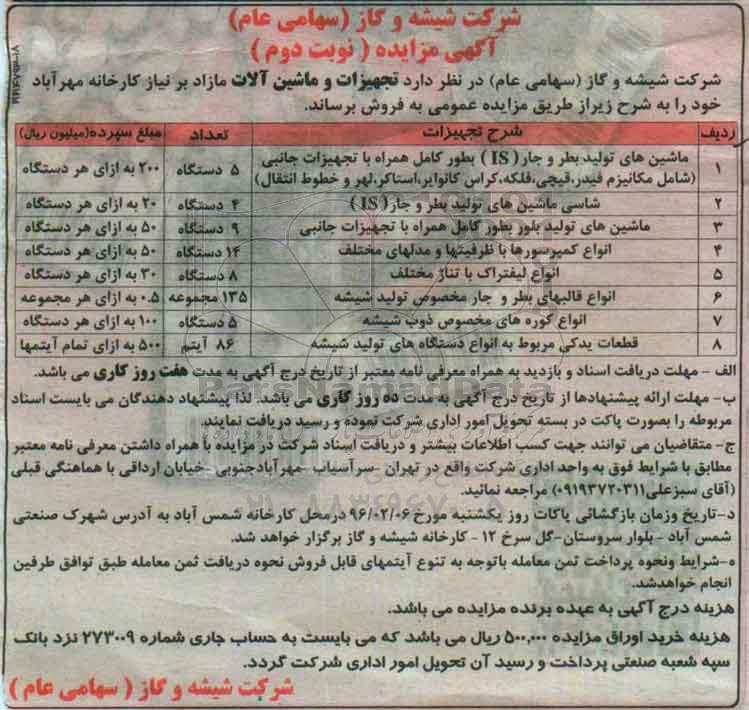 شرکت شیشه و گاز (سهامی عام)
آگهی مزایده ( نوبت دوم )
شرکت شیشه و گاز (سهامی عام) در نظر دارد تجهیزات و ماشین آلات مازاد بر نیاز کارخانه مهرآباد
خود را به شرح زیراز طریق مزایده عمومی به فروش برساند.
ردیف شرح تجهیزات تعداد مبلغ سپرده(میلیون ریال)
۱ ماشین های تولید بطر و جار ( IS ) بطور کامل همراه با تجهیزات جانبی (شامل مکانیزم فیدر،قیچی،فلکه،کراس کانوایر،استاکر،لهر و خطوط انتقال) ۵ دستگاه ۲۰۰ به ازای هر دستگاه
۲ شاسی ماشین های تولید بطر و جار( IS ) ۴ دستگاه ۲۰ به ازای هر دستگاه
۳ ماشین های تولید بلور بطور کامل همراه با تجهیزات جانبی ۹ دستگاه ۵۰ به ازای هر دستگاه
۴ انواع کمپرسورها با ظرفیتها و مدلهای مختلف ۱۴ دستگاه ۵۰ به ازای هر دستگاه
۵ انواع لیفتراک با تناژ مختلف ۸ دستگاه ۳۰ به ازای هر دستگاه
۶ انواع قالبهای بطر و جار مخصوص تولید شیشه ۱۳۵ مجموعه ۰.۵ به ازای هر مجموعه
۷ انواع کوره های مخصوص ذوب شیشه ۵ دستگاه ۱۰۰ به ازای هر دستگاه
۸ قطعات یدکی مربوط به انواع دستگاه های تولید شیشه ۸۶ آیتم ۵۰۰ به ازای تمام آیتمها
الف - مهلت دریافت اسناد و بازدید به همراه معرفی نامه معتبر از تاریخ درج آگهی به مدت هفت روز کاری می باشد.
ب- مهلت ارائه پیشنهادها از تاریخ درج آگهی به مدت ده روز کاری می باشد. لذا پیشنهاد دهندگان می بایست اسناد
مربوطه را بصورت پاکت در بسته تحویل امور اداری شرکت نموده و رسید دریافت نمایند.
ج- متقاضیان می توانند جهت کسب اطلاعات بیشتر و دریافت اسناد شرکت در مزایده با همراه داشتن معرفی نامه معتبر
مطابق با شرایط فوق به واحد اداری شرکت واقع در تهران -سرآسیاب -مهرآبادجنوبی -خیابان ارداقی با هماهنگی قبلی
(آقای سبزعلی۰۹۱۹۳۷۲۰۳۱۱) مراجعه نمائید.
د-تاریخ وزمان بازگشائی پاکات روز یکشنبه مورخ ۹۶/۰۲/۰۶ درمحل کارخانه شمس آباد به آدرس شهرک صنعتی
شمس آباد -بلوار سروستان-گل سرخ ۱۲ - کارخانه شیشه و گاز برگزار خواهد شد.
ه-شرایط ونحوه پرداخت ثمن معامله باتوجه به تنوع آیتمهای قابل فروش نحوه دریافت ثمن معامله طبق توافق طرفین
انجام خواهدشد.
هزینه درج آگهی به عهده برنده مزایده می باشد.
هزینه خرید اوراق مزایده ۵۰۰,۰۰۰ ریال می باشد که می بایست به حساب جاری شماره ۲۷۳۰۰۹ نزد بانک
سپه شعبه صنعتی پرداخت و رسید آن تحویل امور اداری شرکت گردد.
شرکت شیشه و گاز ( سهامی عام )
ParsNamadData